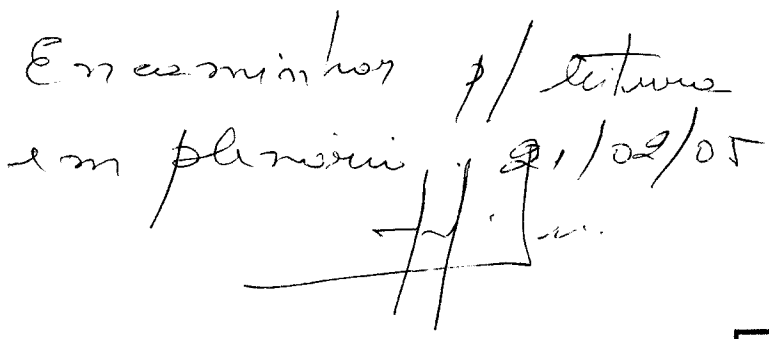 Encaminhar p/ leitura
em plenário. 21/02/05